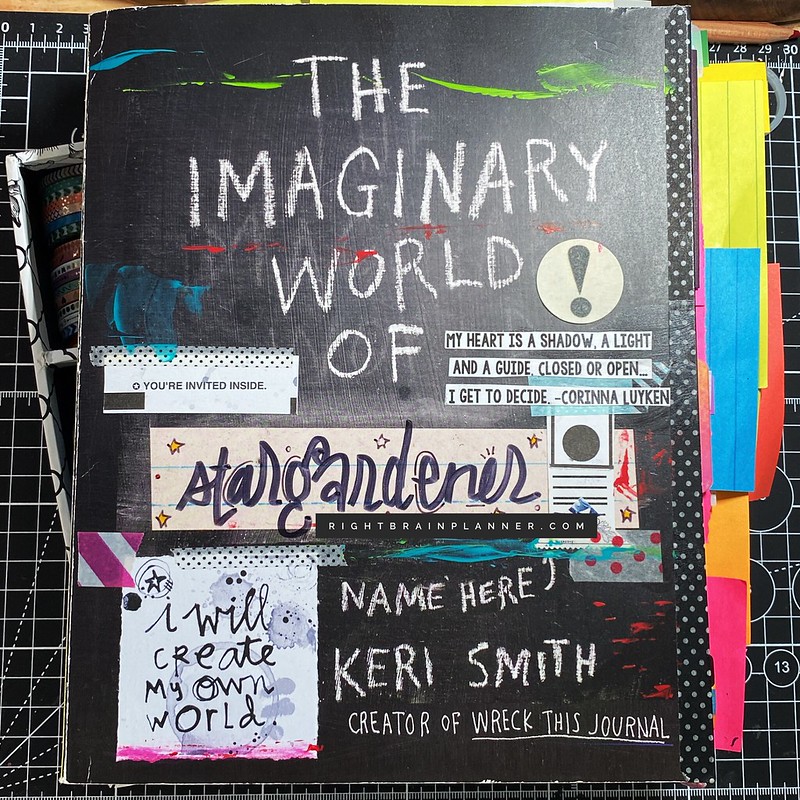 0
27 28 29 30
THE
IMAGINARY
WORLD
OF
!
MY HEART IS A SHADOW, A LIGHT
AND A GUIDE, CLOSED OR OPEN...
I GET TO DECIDE. -CORINNA LUYKEN
YOU'RE INVITED INSIDE.
stargardener
RIGHTBRAINPLANNER.COM
NAME HERE
i will
create
my own
world.
KERI SMITH
CREATOR OF WRECK THIS JOURNAL
13